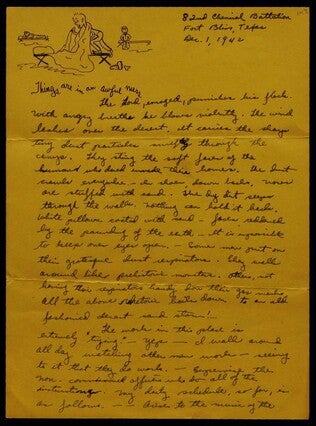 82nd Chemical Battalion
Fort Bliss, Texas
Dec. 1, 1942
Things are in an awful mess
The Lord, enraged, punishes his flock.
With angry breaths he blows violently. The wind
lashes over the desert. It carries the sharp
tiny dust particles through the
camps. They sting the soft faces of the
humans who dared invade their homes. The dust
crawls everywhere - in shoes, down backs, noses
are stuffed with sand. The dry dirt seeps
through the walls. Nothing can hold it back.
White pillows coated with sand - faces reddened
by the pounding of the earth - It is impossible
to keep over eyes open. - Some men put on
their grotesque dust respirators. They walk
around like prehistoric monsters. Others, not
having their respirators handy don their gas masks
All the above boils down to an old
fashioned desert sand storm!..
The work in this place is
extremely "trying" - Yep - I walk around
all day watching other men work - seeing
to it that they do work. - Supervising the
non. commissioned officers who do all of the
instructions. My duty schedule, so far, is
as follows. - Arise to the music of the